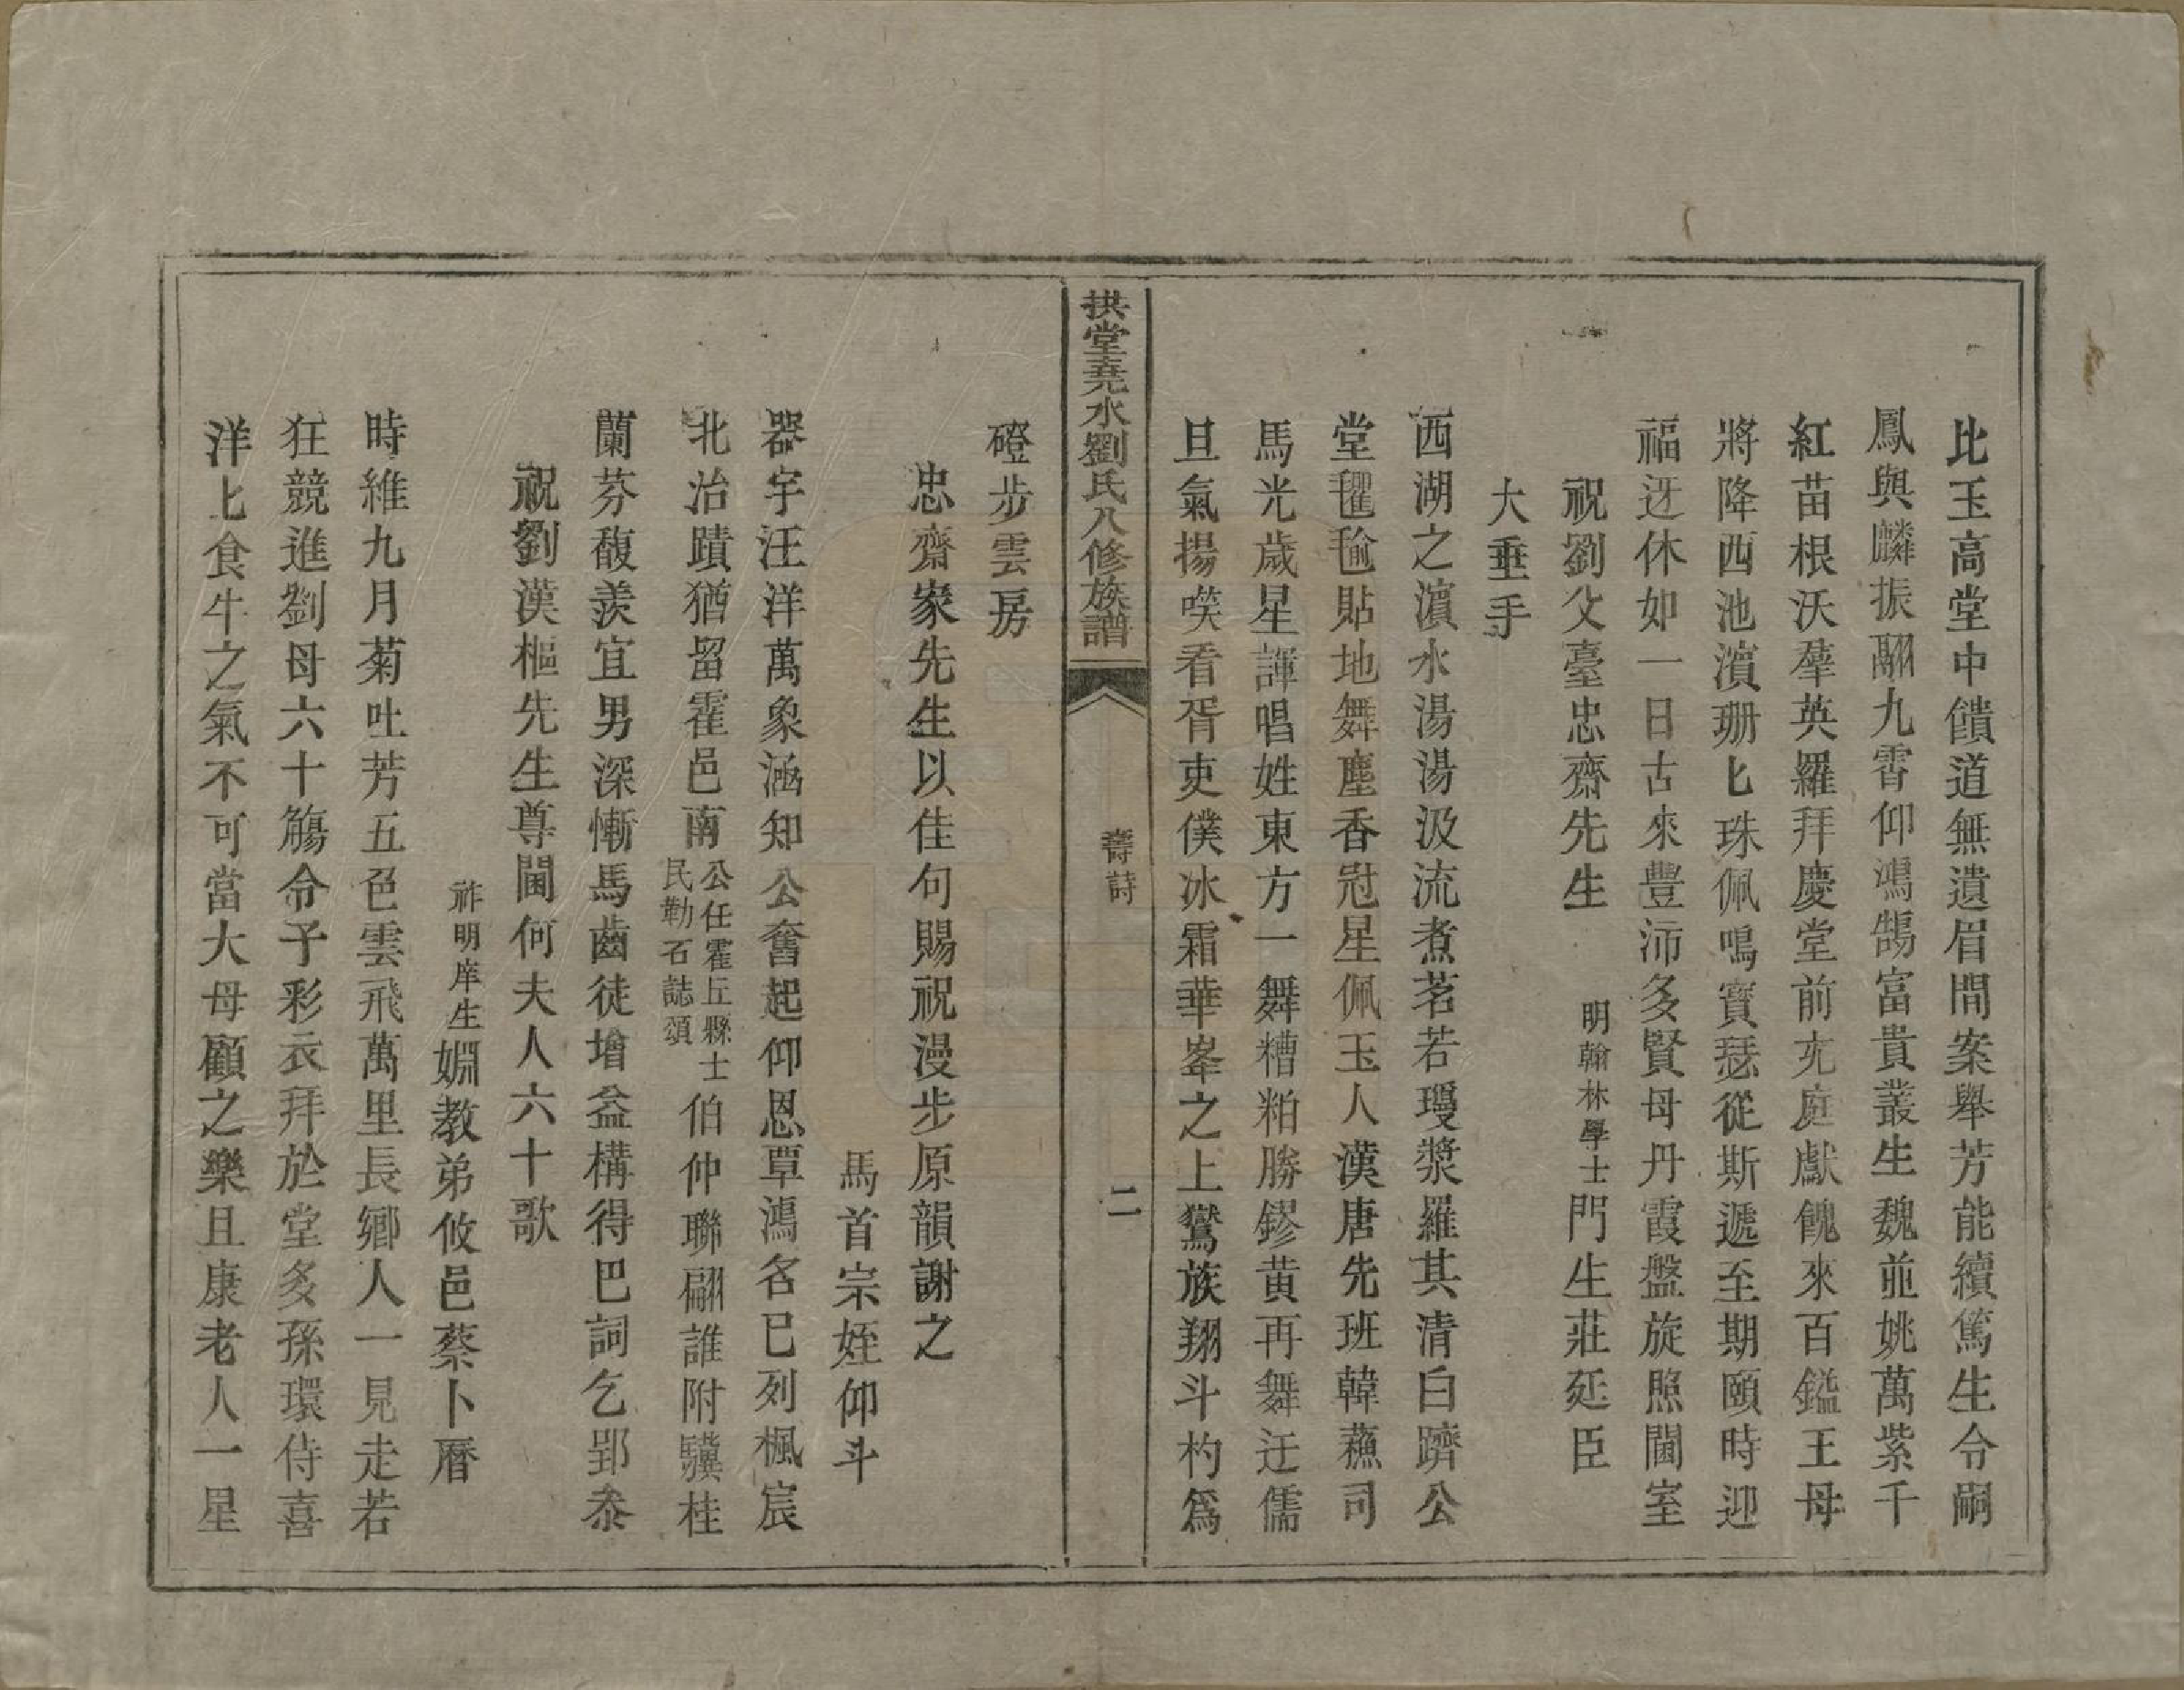 比玉高堂中饋道無遺眉間案舉芳能續篤生令嗣
鳳與麟振翮九霄仰鴻鵠富貴叢生魏並姚萬紫千
紅苗根沃羣英羅拜慶堂前充庭獻餽來百鎰王母
將降西池濱珊匕珠佩鳴寳瑟從斯遞至期頤時迎
福迓休如一日古來豐沛多賢母丹霞盤旋照閫室
祝劉父臺忠齋先生 明翰林學士門生莊延臣
大垂手
西湖之濵水湯湯汲流煮茗若瓊漿羅其清白躋公
堂氍毹貼地舞塵香冠星佩玉人漢唐先班韓蘓司
馬光歲星譁唱姓東方一舞糟粕勝鏐黄再舞迂儒
旦氣揚唉看胥吏僕冰霜華峯之上鸑族翔斗杓爲
拱堂堯水劉氏八修族譜
壽詩
二
磴步雲房
忠齋家先生以佳句賜祝漫步原韻謝之
馬首宗姪仰斗
器宇汪洋萬象涵知公奮起仰恩覃鴻名已列楓宸
北治蹟猶留霍邑南公任霍丘縣士民勒石誌頌伯仲聯翩誰附驥桂
蘭芬馥羨宜男深慚馬齒徒增益構得巴詞乞郢叅
祝劉漢樞先生尊閫何夫人六十歌
祚明庠生婣教弟攸邑蔡卜曆
時維九月菊吐芳五色雲飛萬里長鄉人一見走若
狂競進劉母六十觴令子彩衣拜於堂多孫環侍喜
洋匕食牛之氣不可當大母顧之樂且康老人一星